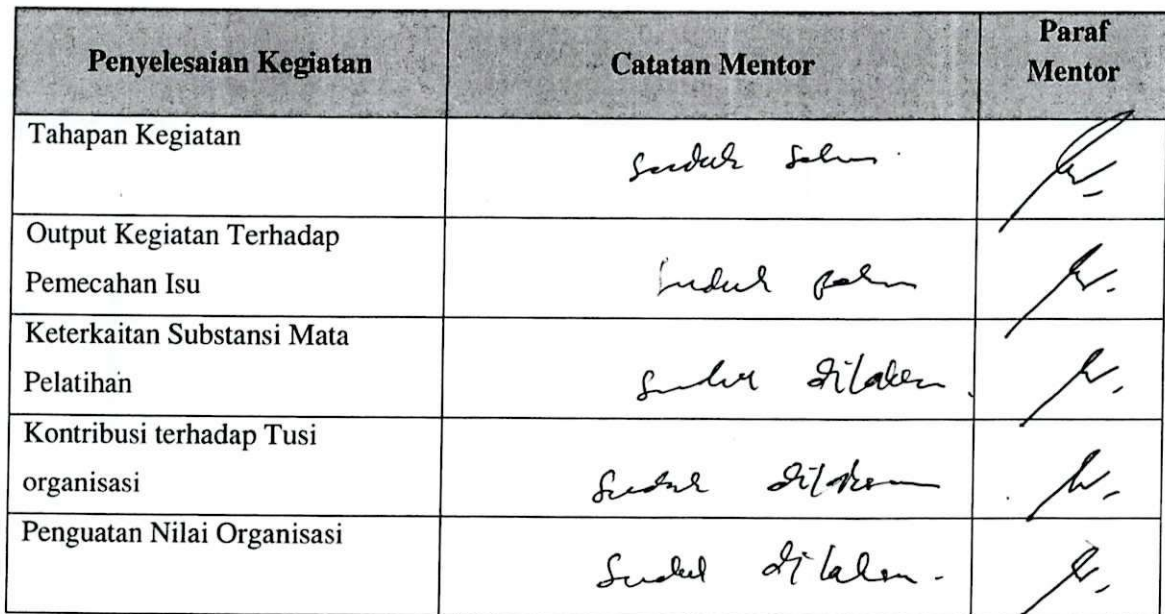 Penyelesaian Kegiatan
Catatan Mentor
Paraf
Mentor
Tahapan Kegiatan
Sudah
Output Kegiatan Terhadap
Pemecahan Isu
Sudah
Keterkaitan Substansi Mata
Pelatihan
Sudah
Kontribusi terhadap Tusi
organisasi
Sudah
Penguatan Nilai Organisasi
Sudah